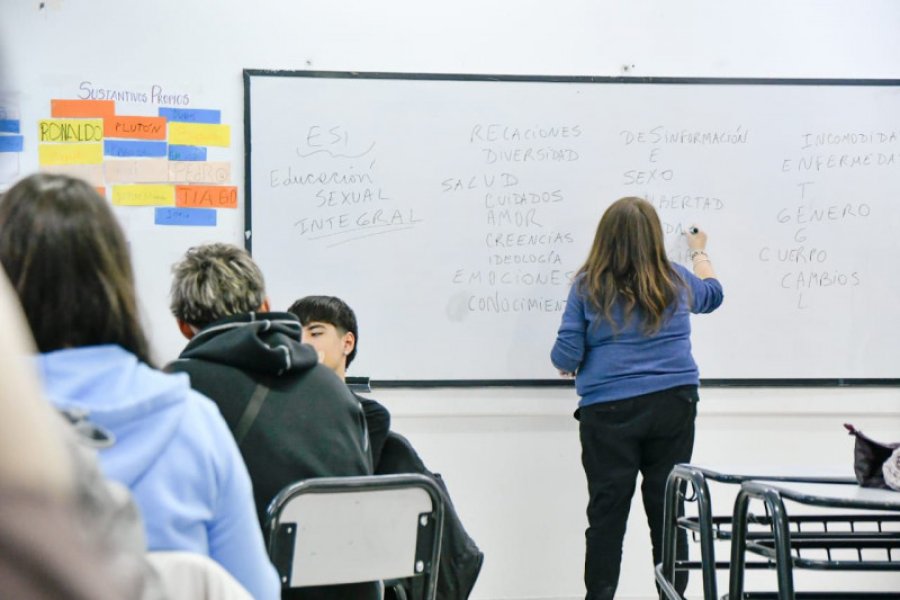 SUSTANTIVOS PROPIOS
RONALDO
PLUTÓN
PEDRO
TIAGO
ESI
Educación
SEXUAL
INTEGRAL
RELACIONES
DIVERSIDAD
SALUD
CUIDADOS
AMOR
CREENCIAS
IDEOLOGÍA
EMOCIONES
CONOCIMIENT
DESINFORMACIÓN
E
SEXO
BERTAD
INCOMODIDA
ENFERMEDA
T
GÉNERO
G
CUERPO
CAMBIOS
L